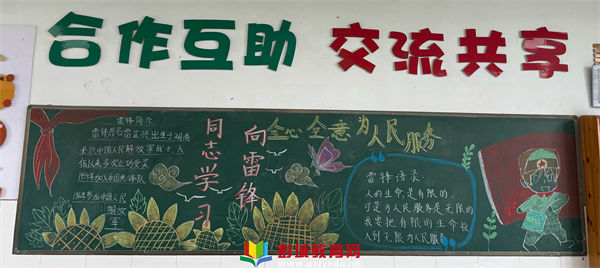 合作互助 交流共享
雷锋简介
雷锋原名雷正兴,出生于湖南
长沙中国人民解放军战士,入
伍以来多次立功受奖
加入中国
人民
解放
军
向雷锋
同志学习
全心全意为人民服务
雷锋语录
人的生命,是有限的,
可是为人民服务是无限的
我要把有限的生命投
入到无限为人民服务
彭波教育网